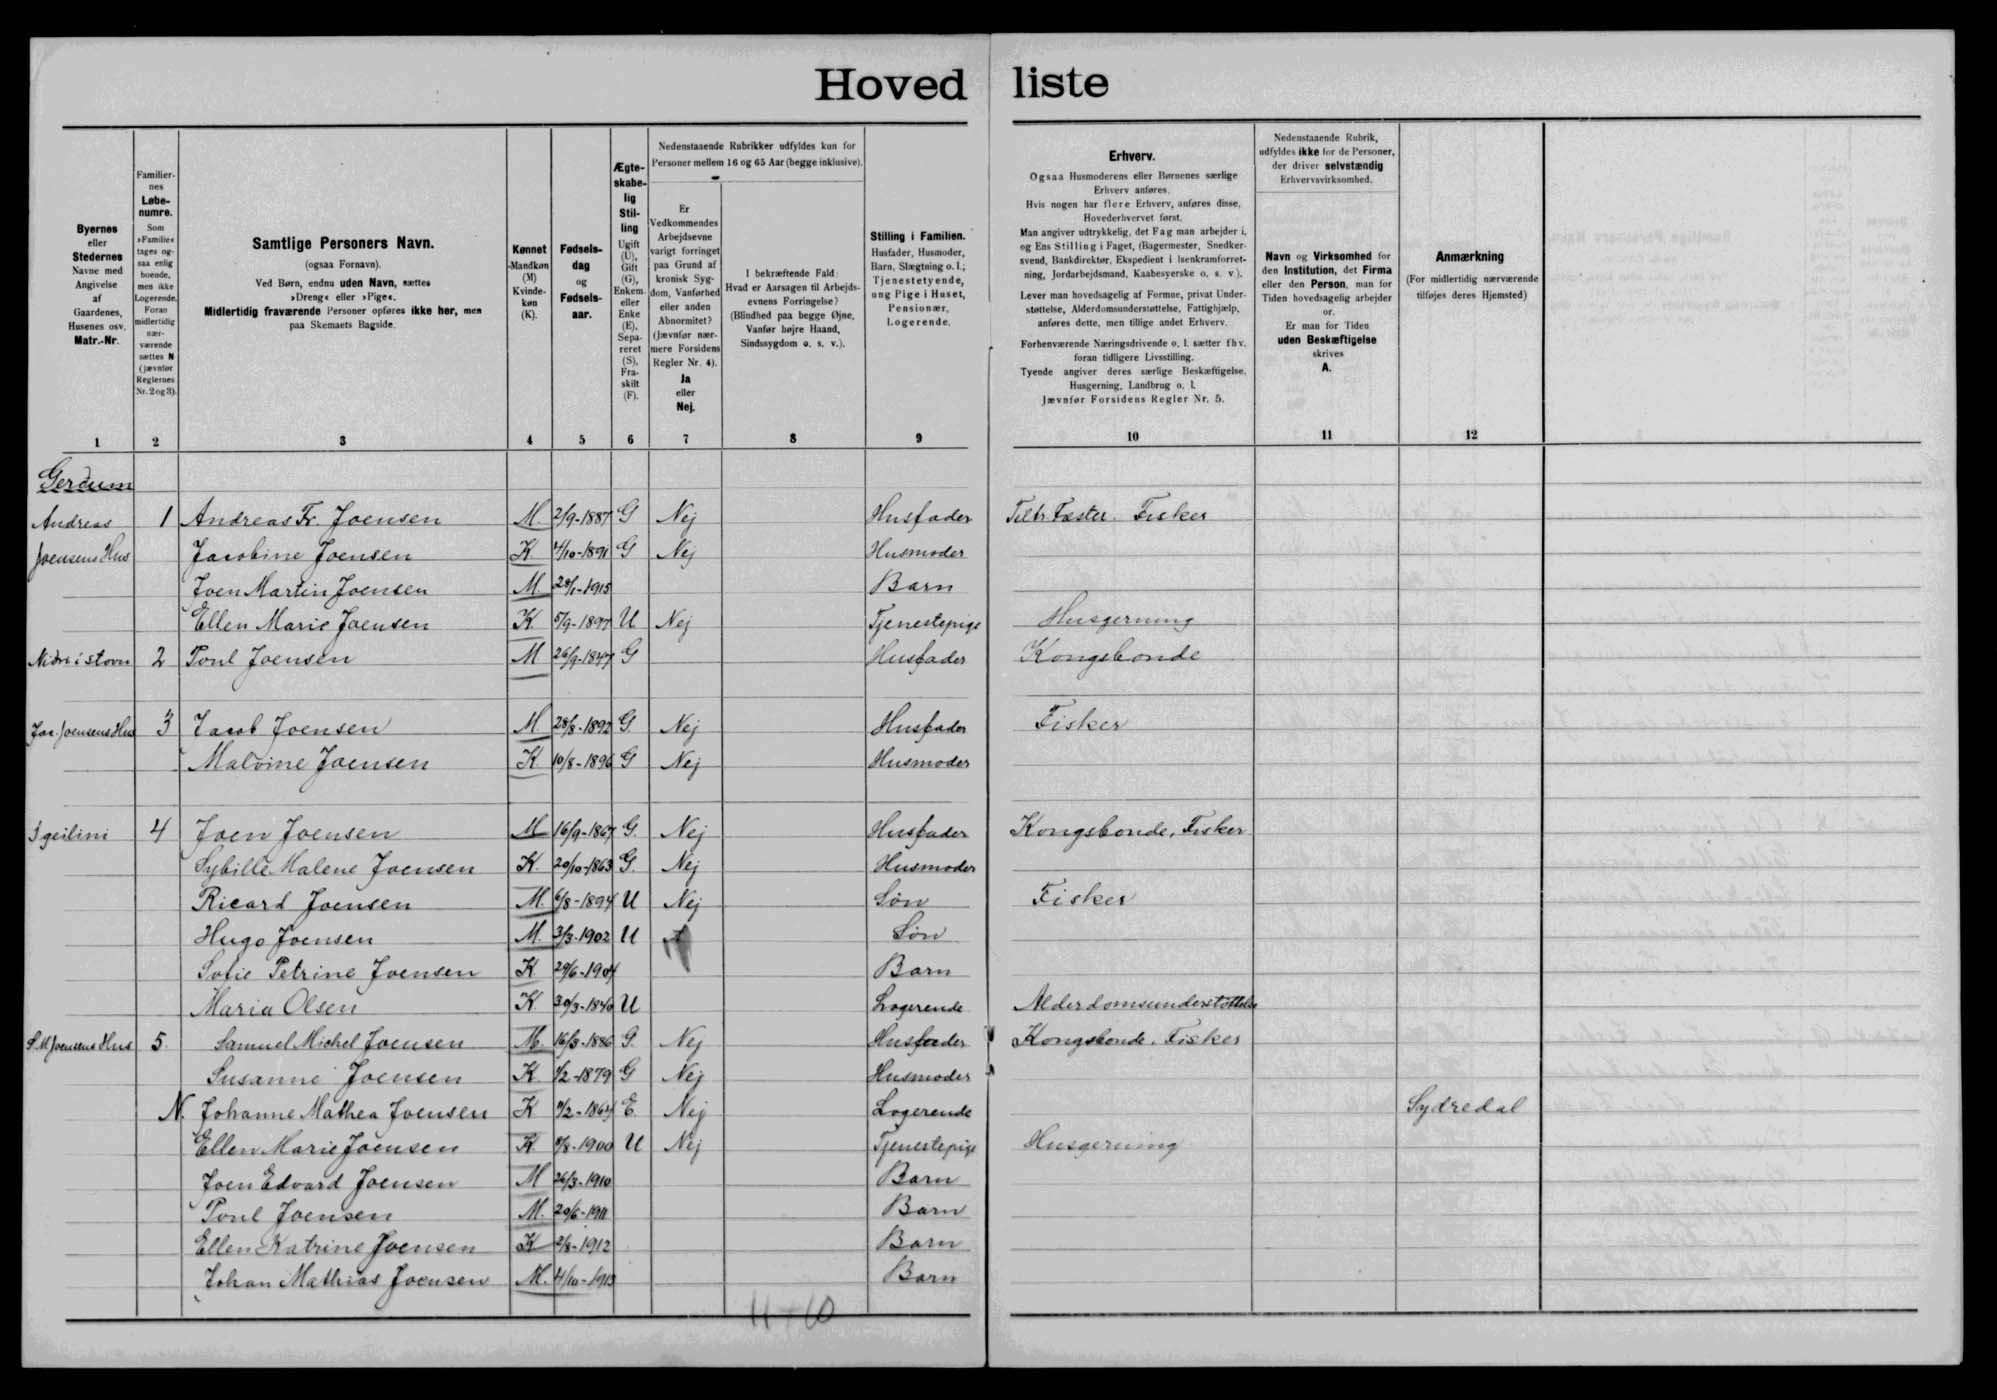 Hoved liste
Byernes
eller
Stedernes
Navne med
Angivelse
af
Gaardenes,
Husenes osv.
Matr.-Nr.
1
Familier-
nes
Løbe-
numre.
Som
»Familie«
tages og-
saa enlig
boende,
men ikke
Logerende.
Foran
midlertidig
nær-
værende
sættes N
(jævnfør
Reglernes
Nr. 2 og 3).
2
Samtlige Personers Navn.
(ogsaa Fornavn).
Ved Børn, endnu uden Navn, sættes
»Dreng« eller »Pige«.
Midlertidig fraværende Personer opføres ikke her, men
paa Skemaets Bagside.
3
Kønnet
Mandkøn
(M)
Kvinde-
køn
(K).
4
Fødsels-
dag
og
Fødsels-
aar.
5
Ægte-
skabe-
lig
Stil-
ling
Ugift
(U),
Gift
(G),
Enkem.
eller
Enke
(E),
Sepa-
reret
(S),
Fra-
skilt
(F).
6
Nedenstaaende Rubrikker udfyldes kun for
Personer mellem 16 og 65 Aar (begge inklusive).
Er
Vedkommendes
Arbejdsevne
varigt forringet
paa Grund af
kronisk Syg-
dom, Vanførhed
eller anden
Abnormitet?
(Jævnfør nær-
mere Forsidens
Regler Nr. 4).
Ja
eller
Nej.
7
I bekræftende Fald:
Hvad er Aarsagen til Arbejds-
evnens Forringelse?
(Blindhed paa begge Øjne,
Vanfør højre Haand,
Sindssygdom o. s. v.).
8
Stilling i Familien.
Husfader, Husmoder,
Barn, Slægtning o. l.;
Tjenestetyende,
ung Pige i Huset,
Pensionær,
Logerende.
9
Erhverv.
Ogsaa Husmoderens eller Børnenes særlige
Erhverv anføres.
Hvis nogen har flere Erhverv, anføres disse,
Hovederhvervet først.
Man angiver udtrykkelig, det Fag man arbejder i,
og Ens Stilling i Faget, (Bagermester, Snedker-
svend, Bankdirektør, Ekspedient i Isenkramforret-
ning, Jordarbejdsmand, Kaabesyerske o. s. v.).
Lever man hovedsagelig af Formue, privat Under-
støttelse, Alderdomsunderstøttelse, Fattighjælp,
anføres dette, men tillige andet Erhverv.
Forhenværende Næringsdrivende o. l. sætter fhv.
foran tidligere Livsstilling.
Tyende angiver deres særlige Beskæftigelse,
Husgerning, Landbrug o. l.
Jævnfør Forsidens Regler Nr. 5.
10
Nedenstaaende Rubrik,
udfyldes ikke for de Personer,
der driver selvstændig
Erhvervsvirksomhed.
Navn og Virksomhed for
den Institution, det Firma
eller den Person, man for
Tiden hovedsagelig arbejder
for.
Er man for Tiden
uden Beskæftigelse
skrives
A.
11
Anmærkning
(For midlertidig nærværende
tilføjes deres Hjemsted)
12
Gerdum
Andreas 1 Andreas Fr. Joensen M. 2/9-1887 G Nej Husfader Fisker
Joensens Hus Jacobine Joensen K. 4/10-1891 G Nej Husmoder
Joen Martin Joensen M. 28/1-1915 Barn
Ellen Marie Joensen K 5/9-1897 U Nej Tjenestepige Husgerning
Nidri i stovu 2 Poul Joensen M 26/9-1847 G Husfader Kongsbonde
Jac. Joensens Hus 3 Jacob Joensen M 28/8-1892 G. Nej Husfader Fisker
Malvine Joensen K. 10/8-1896 G Nej Husmoder
I geilini 4 Joen Joensen M 16/9-1867 G. Nej Husfader Kongsbonde, Fisker
Sybille Malene Joensen K. 20/10-1863 G. Nej Husmoder
Ricard Joensen M. 6/8-1894 U Nej Søn Fisker
Hugo Joensen M. 3/3-1902 U Søn
Sofie Petrine Joensen K 29/6-1904 Barn
Maria Olsen K. 30/3-1840 U Logerende Alderdomsunderstøttelse
S.M Joensens Hus 5. Samuel Michel Joensen M. 16/3-1886 G. Nej Husfader Kongsbonde. Fisker
Susanne Joensen K. 1/2-1879 G Nej Husmoder
N. Johanne Mathea Joensen K 9/2-1864 E. Nej Logerende Sydredal
Ellen Marie Joensen K. 9/8-1900 U Nej Tjenestepige Husgerning
Joen Edvard Joensen M 26/3-1910 Barn
Poul Joensen M. 20/6-1911 Barn
Ellen Katrine Joensen K 2/8-1912 Barn
Johan Mathias Joensen M. 4/10-1913 Barn
11+10